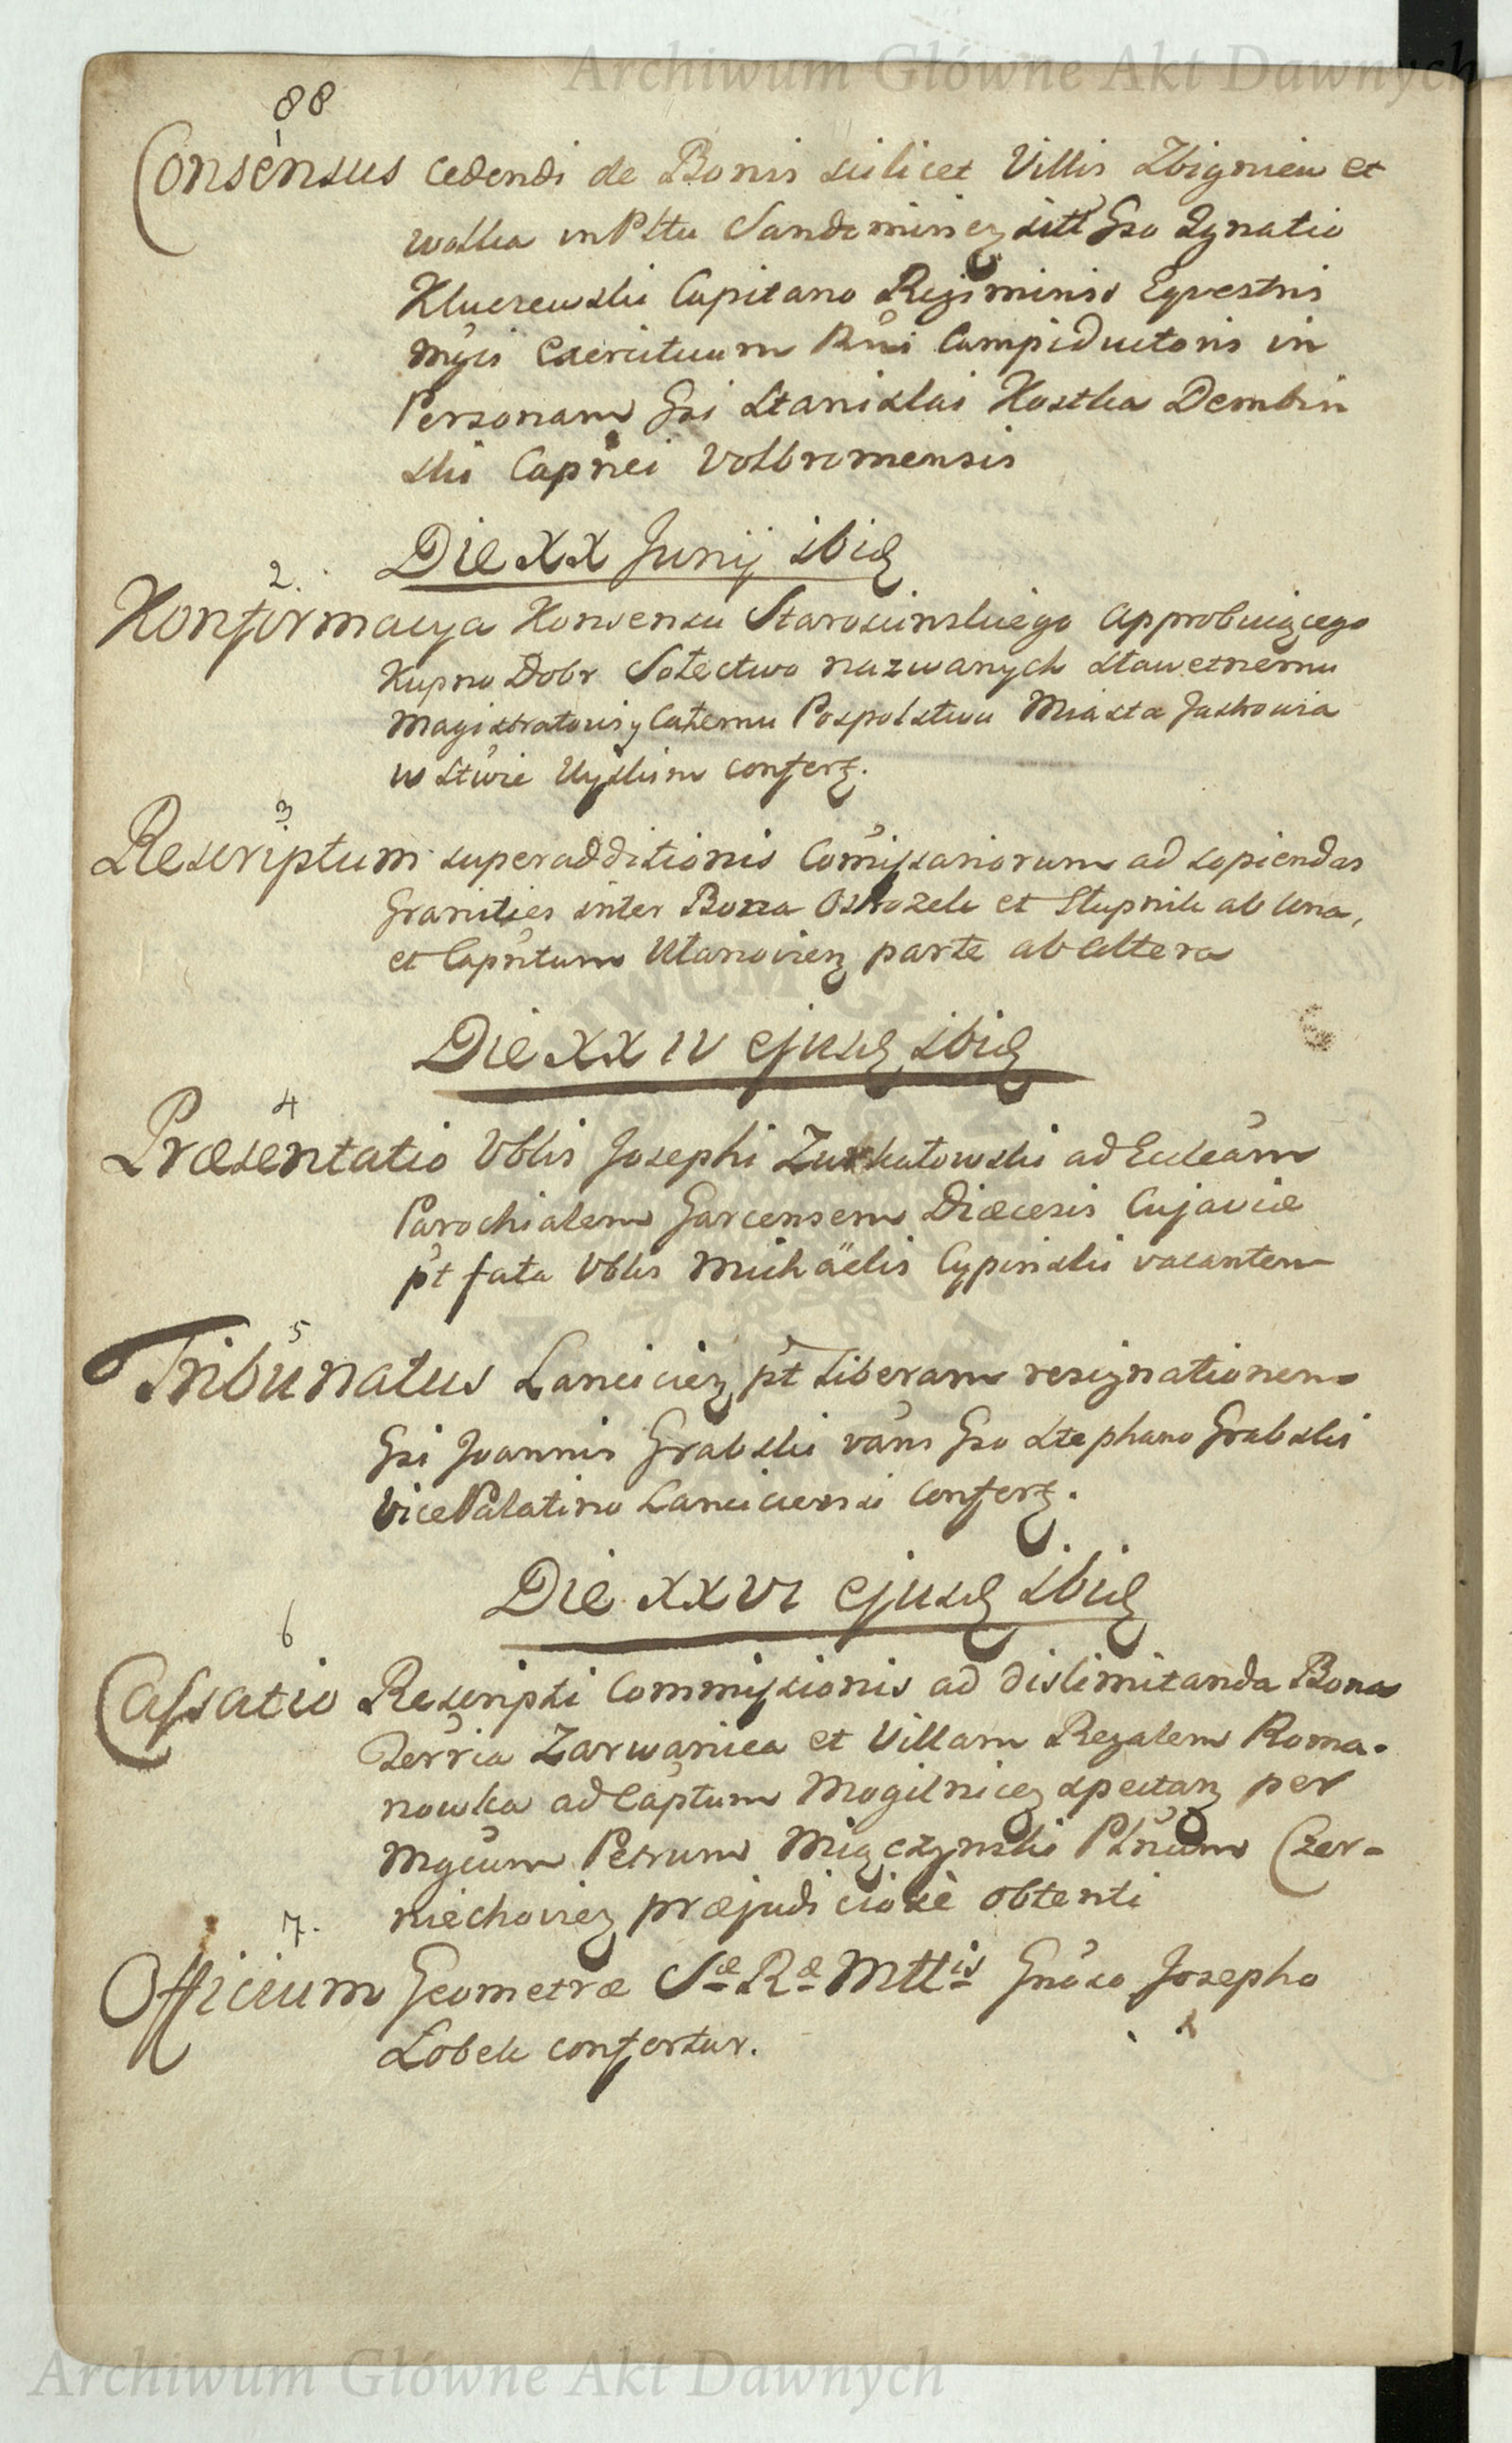 Archiwum Główne Akt Dawnych
88
1
Consensus cedendi de Bonis scilicet Villis Zbigniew et
Wolka in Pltu Sandomirien sitt Gso Ignatio
Kluczewski Capitano Regiminis Equestris
Mgci Exercituum Rni Campiductoris in
Personam Gsi Stanislai Kostka Dembin
ski Capnei Volbromensis
Die XX Junij ibid
2.
Konfirmacya Konsensu Staroscinskiego approbuiącego
Kupno Dobr Sołectwo nazwanych sławetnemu
Magistratowi y Całemu Pospolstwu Miasta Jastrowia
w Stwie Uyskim confert.
3
Rescriptum superadditionis Comissariorum ad sopiendas
Granities inter Bona Ostrozek et Stupnik ab una,
et Capntum Utanovien parte ab altera
Die XXIV ejusd ibid
4
Præsentatio Vblis Josephi Zuchatowski ad Eccleam
Parochialem Garcensem Diæcesis Cujaviæ
pt fata Vblis Michäelis Cypinski vacantem
5
Tribunatus Lancicien pt liberam resignationem
Gsi Joannis Grabski vans Gso Stephano Grabski
Vice Palatino Lanciciensi confert.
Die XXVI ejusd ibid
6
Cassatio Rescripti Commissionis ad dislimitanda Bona
Terria Zarwanica et Villam Regalem Roma-
nowka ad Captum Mogilnicen spectan per
Mgcum Petrum Miączynski Pltnum Czer-
niechovien præjudiciose obtenti
7.
Officium Geometræ Sæ Ræ Mttis Gnoso Josepho
Lobek confertur.
Archiwum Główne Akt Dawnych